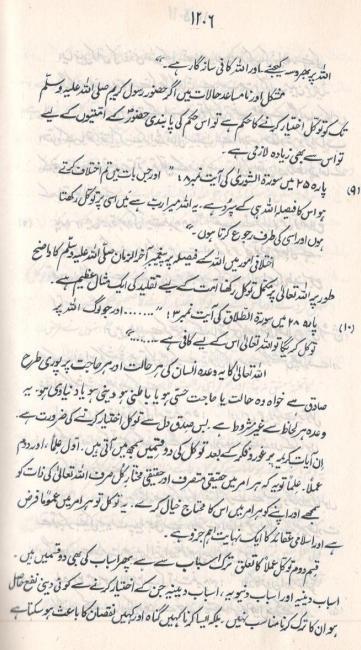 ۱۲۰۶
اللہ پر بھروسہ کیجئے اور اللہ کافی سازگار ہے۔"
مشکل اور نامساعد حالات میں اگر حضور رسول کریم صلی اللہ علیہ وسلم
تک کو توکل اختیار کرنے کا حکم ہے تو اس حکم کی پابندی حضورؐ کے امتیوں کے لیے
تو اس سے بھی زیادہ لازمی ہے۔
(۹) پارہ ۲۵ میں سورۃ الشوریٰ کی آیت نمبر ۱۰: "اور جن باتیں تم اختلاف کرتے
ہو اس کا فیصلہ اللہ ہی کے سپرد ہے۔ یہ اللہ میرا رب ہے میں اسی پر توکل رکھتا
ہوں اور اسی کی طرف رجوع کرتا ہوں۔"
اختلافی امور میں اللہ کے فیصلہ پر پیغمبر آخر الزمان صلی اللہ علیہ وسلم کا واضح
طور پر اللہ تعالیٰ پر مکمل توکل رکھنا امت کے لیے تقلید کی ایک مثال عظیم ہے۔
(۱۰) پارہ ۲۸ میں سورۃ الطلاق کی آیت نمبر ۳: "....... اور جو لوگ اللہ پر
توکل کریگا تو اللہ تعالیٰ اس کے لیے کافی ہے ......"
اللہ تعالیٰ کا یہ وعدہ انسان کی ہر حالت اور ہر حاجت پر پوری طرح
صادق ہے خواہ وہ حالت یا حاجت حسّی ہو یا باطنی ہو دینی ہو یا دنیاوی ہو۔ یہ
وعدہ ہر لحاظ سے غیر مشروط ہے۔ بس صدق دل سے توکل اختیار کرنے کی ضرورت ہے۔
ان آیات کریمہ پر غور و فکر کے بعد توکل کی دو قسمیں سمجھ میں آتی ہیں۔ اول علماً، اور دوم
عملاً۔ علماً تو یہ کہ ہر امر میں حقیقی متصرف اور حقیقی مختار کل صرف اللہ تعالیٰ کی ذات کو
سمجھے اور اپنے کو ہر امر میں اس کا محتاج خیال کرے۔ یہ توکل تو ہر امر میں عموماً فرض
ہے اور اسلامی عقائد کا ایک نہایت اہم جزو ہے۔
قسم دوم توکل عملاً کا تعلق ترک اسباب سے ہے پھر اسباب کی بھی دو قسمیں ہیں۔
اسباب دینیہ اور اسباب دنیویہ، اسباب دینیہ جن کے اختیار کرنے سے کوئی دینی نفع حاصل
ہو ان کا ترک کرنا مناسب نہیں۔ بلکہ ایسا کرنا کہیں گناہ اور کہیں نقصان کا باعث ہو سکتا ہے